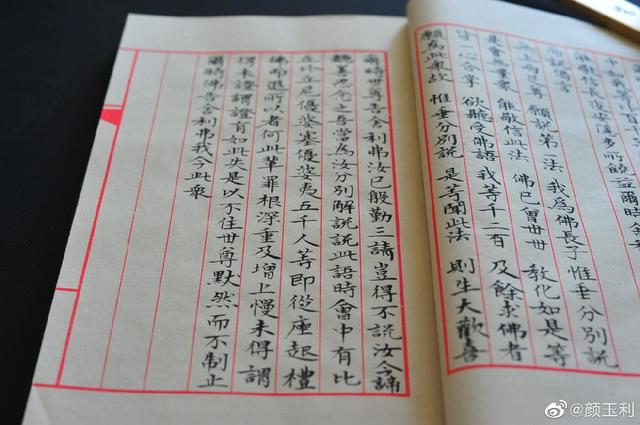 長夜安隱多所饒益爾時舍
而說偈言
無上兩足尊 願說第一法 我為佛長子 惟垂分別說
是會無量眾 能敬信此法 佛已曾世世 教化如是等
皆一心合掌 欲聽受佛語 我等千二百 及餘求佛者
願為此眾故 惟垂分別說 是等聞此法 則生大歡喜
爾時世尊告舍利弗汝已殷勤三請豈得不說汝今諦
聽善思念之吾當為汝分別解說說此語時會中有比
丘比丘尼優婆塞優婆夷五千人等即從座起禮
佛而退所以者何此輩罪根深重及增上慢未得謂
得未證謂證有如此失是以不住世尊默然而不制止
爾時佛告舍利弗我今此眾
@颜玉利